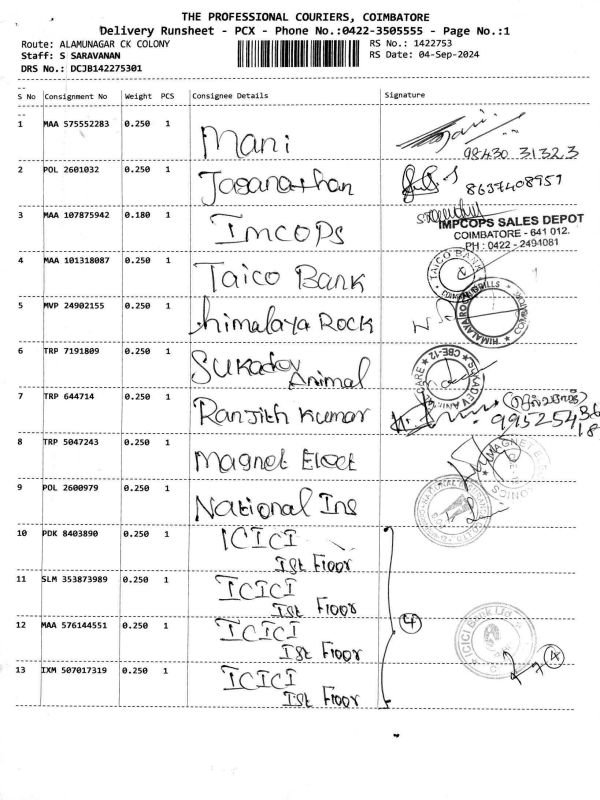 THE PROFESSIONAL COURIERS, COIMBATORE
Delivery Runsheet - PCX - Phone No.:0422-3505555 - Page No.:1
Route: ALAMUNAGAR CK COLONY
RS No.: 1422753
Staff: S SARAVANAN
RS Date: 04-Sep-2024
DRS No.: DCJB142275301
S No Consignment No Weight PCS Consignee Details Signature
1 MAA 575552283 0.250 1 Mani
98430 31323
2 POL 2601032 0.250 1 Jaganathan 8637408951
3 MAA 107875942 0.180 1 Imcops
IMPCOPS SALES DEPOT
COIMBATORE - 641 012.
PH : 0422 - 2494081
4 MAA 101318087 0.250 1 Taico Bank
TAICO BANK
5 MVP 24902155 0.250 1 Himalaya Rock
HIMALAYA ROCK DRILLS
6 TRP 7191809 0.250 1 Sukadev
Animal
SUKADEV ANIMAL CARE * CBE-12 *
7 TRP 644714 0.250 1 Ranjith Kumar
99525436
18
8 TRP 5047243 0.250 1 Magnet Elect
MAGNET
9 POL 2600979 0.250 1 National Ins
10 PDK 8403890 0.250 1 ICICI
Ist Floor
11 SLM 353873989 0.250 1 ICICI
Ist Floor
4
12 MAA 576144551 0.250 1 ICICI
Ist Floor
ICICI Bank Ltd
13 IXM 507017319 0.250 1 ICICI
Ist Floor
4